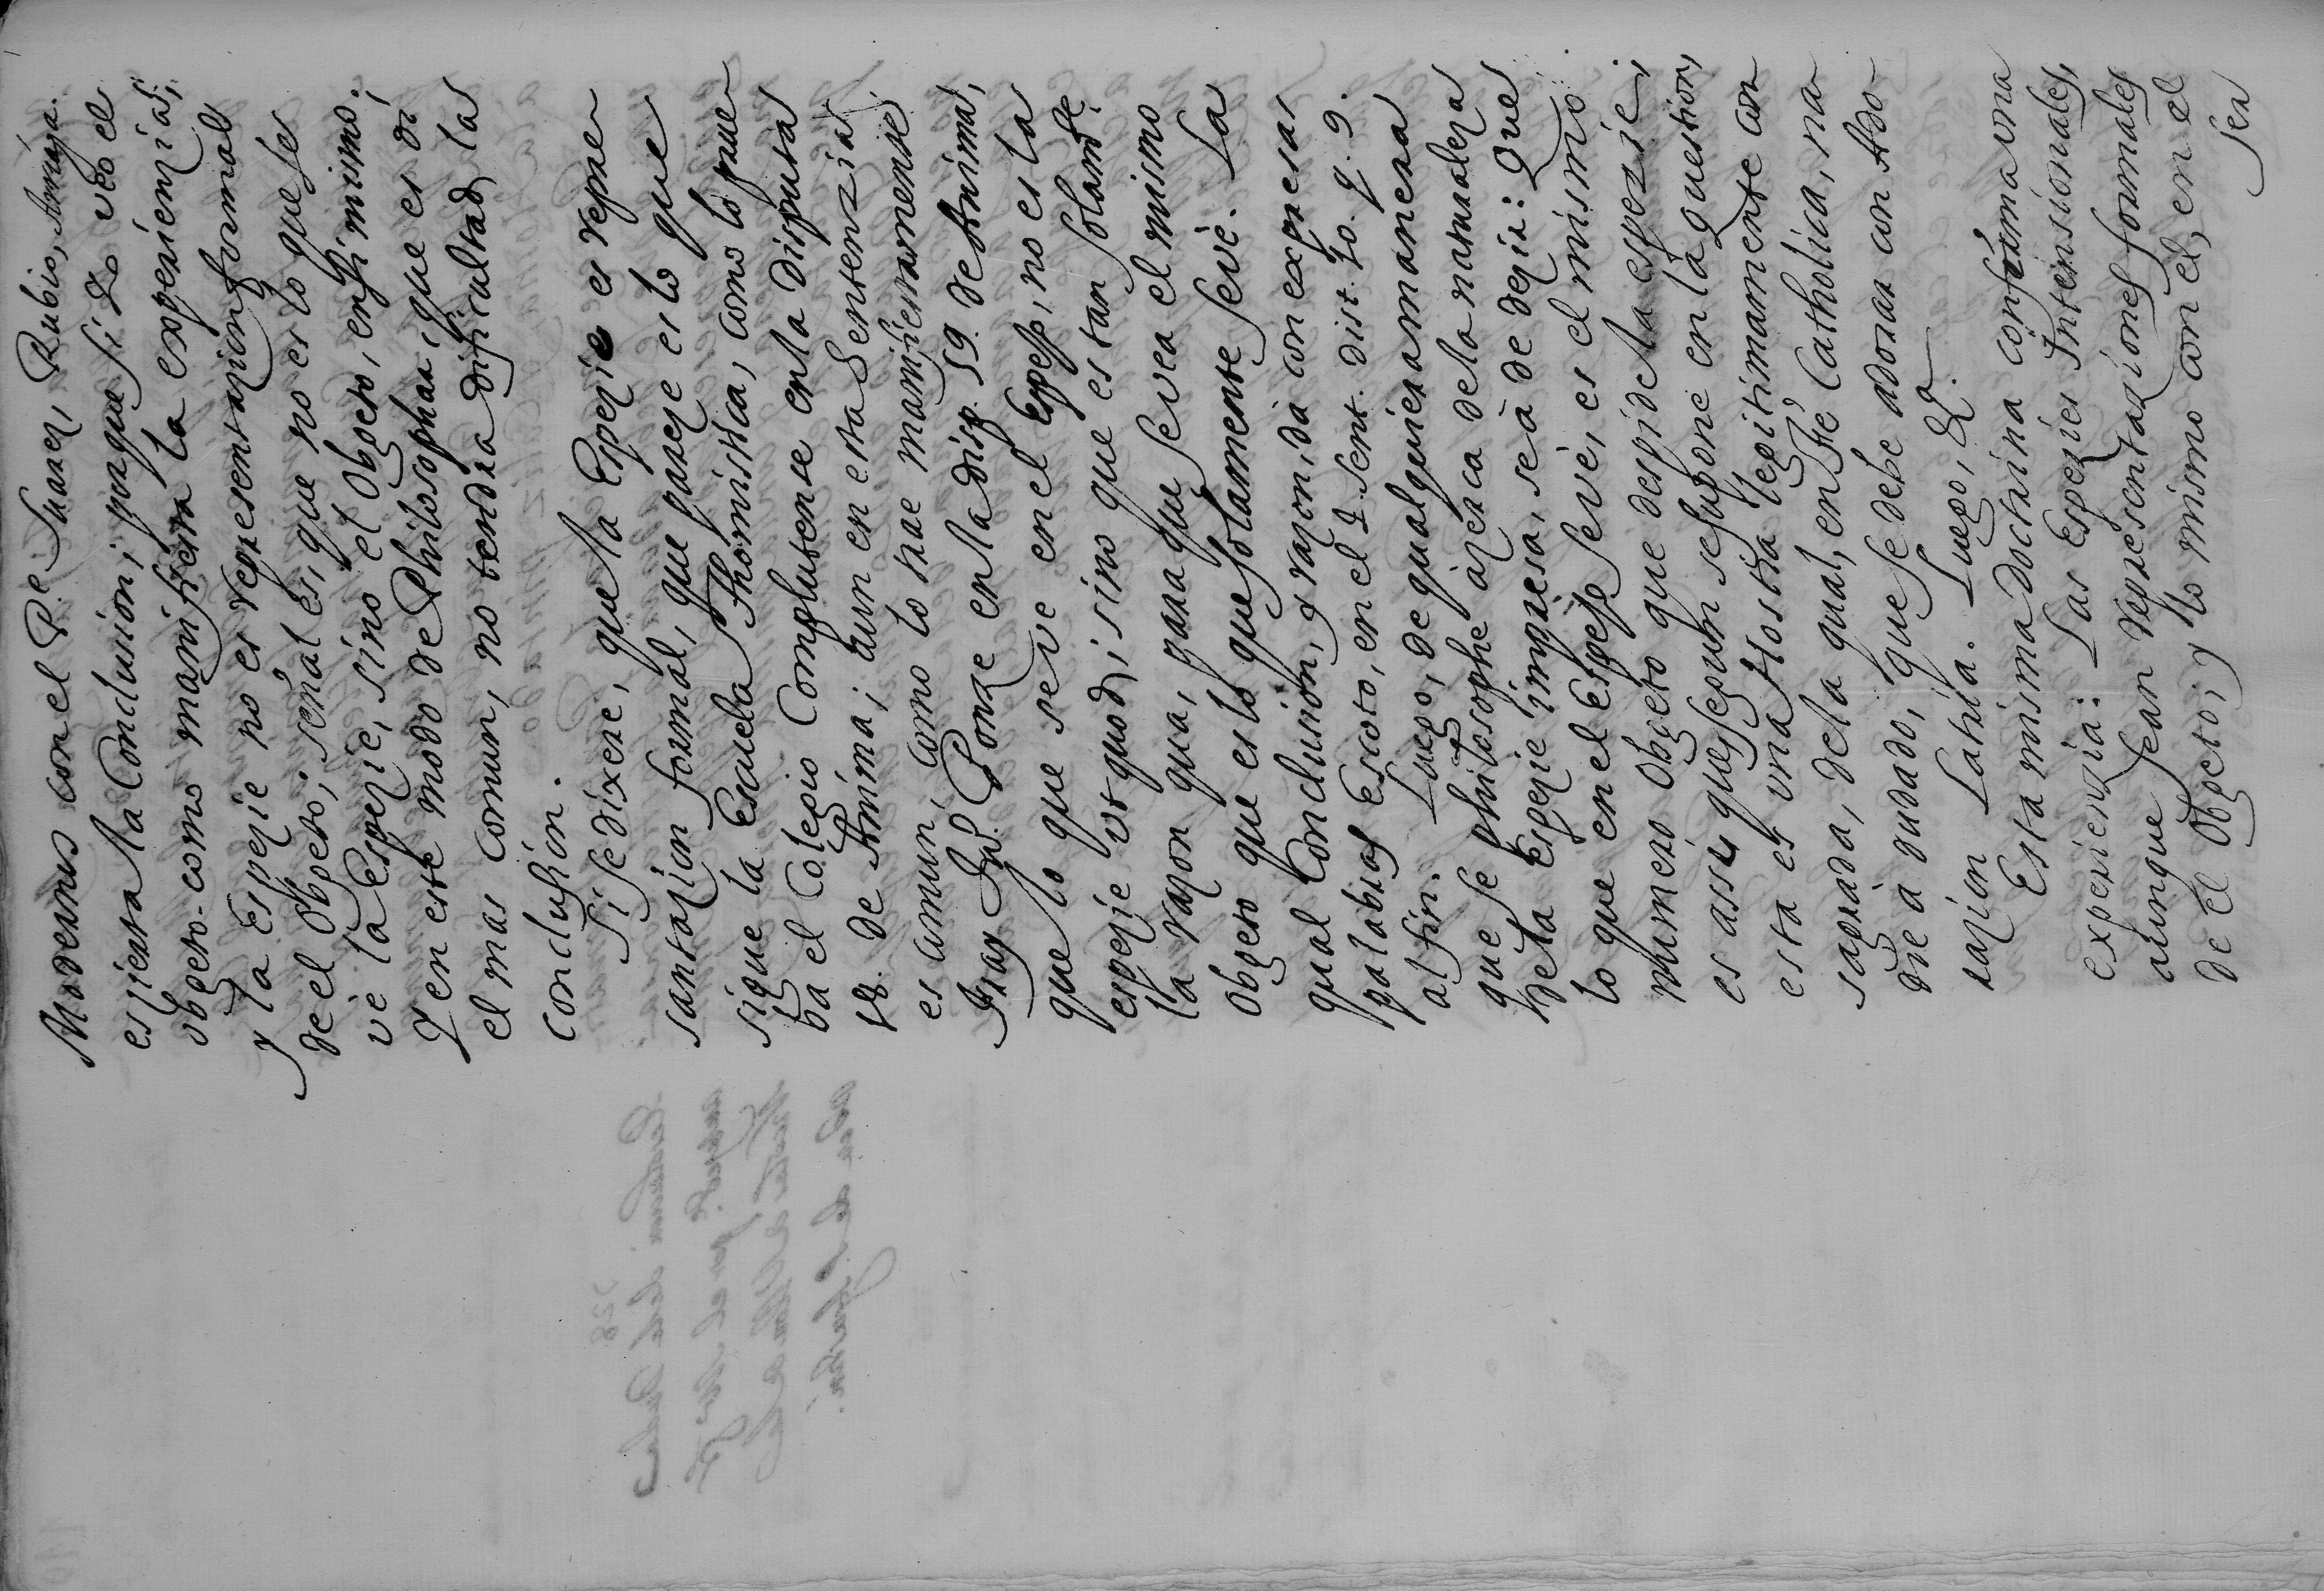 Modernos con el P.e Suarez, Rubio, Arriaga.
es zierta la Conclusion; porque si yo veo el
obgeto como manifiesta la experienzia;
y la Espezie no es representazion formal
de el Obgeto; señal es, que no es lo que se
vè la Espezie, sino el Obgeto, en si mismo;
Y en este modo de Philosophar, que es oí
el mas comun, no tendra dificultad la
conclusión.
Si se dixere, que la Espezie es repre
santazion formal, que pareze es lo que
sigue la Escuela Thomistica, como lo prue
ba el Colegio Complutense en la Disputa
18. de Anima; aun en esta Sentenzia
es comun, como lo trae manifiestamente
Fray Ju.º Ponze en la disp. 59. de Anima,
que lo que se ve en el Espejo, no es la
espezie ut quod; sino que es tan solam.te
la razon qua, para que se vea el mismo
Obgeto que es lo que solamente se vè. La
qual Conclusion, y razon, dà con expresas
palabras Escoto, en el 2 Sent. dist. 10. q. 9.
al fin. Luego, de qualquiera manera
que se philosophe àzerca de la naturaleza
de la Espezie impresa, se à de dezir: Que
lo que en el Espejo se vè, es el mismo
numero Obgeto que despide la espezie;
es assi que segun se supone en la question,
esta es una Hostia legitimamente con
sagrada, de la qual, en Fé Catholica, na
die à dudado, que se debe adorar con Ado
razion Latria. Luego, &.ª
Esta misma doctrina confirma una
experienzia: Las Espezies Intensionales,
aunque sean representaziones formales
de el Obgeto; y lo mismo con el, en el
ser